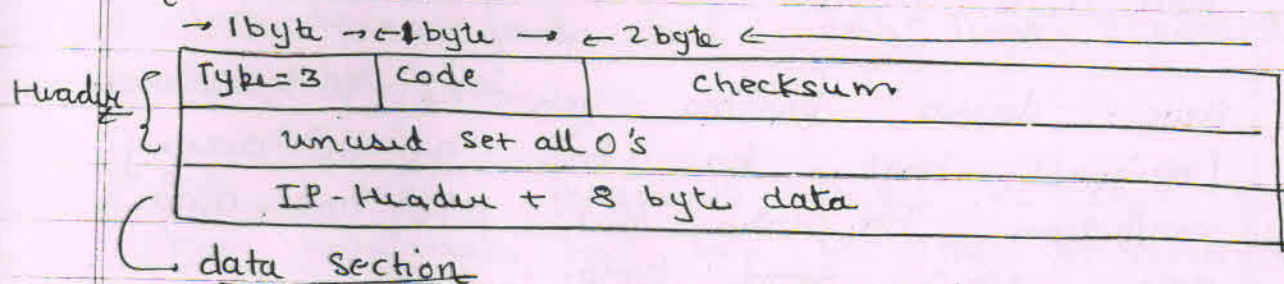 → 1byte →← 1byte → ← 2byte ←
Header { Type=3 code checksum
unused set all 0's
IP-Header + 8 byte data
data section